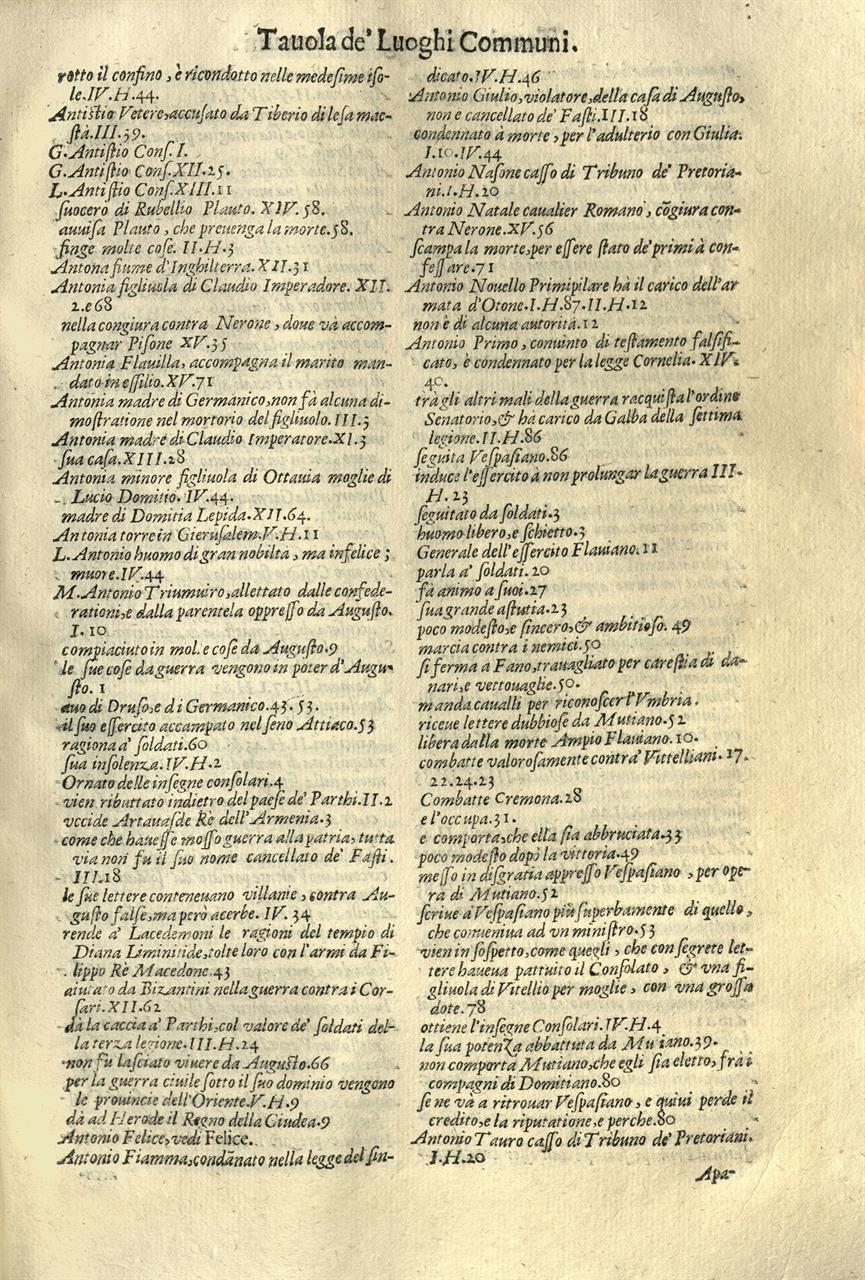 Tauola de' Luoghi Communi.
rotto il confino, è ricondotto nelle medesime iso-
le.IV.H.44.
Antistio Vetere, accusato da Tiberio di lesa mae-
stà.III.39.
G.Antistio Cons.I.
G.Antistio Cons.XII.25.
L.Antistio Cons.XIII.11
suocero di Rubellio Plauto. XIV. 58.
auuisa Plauto, che preuenga la morte.58.
finge molte cose. II.H.3
Antona fiume d'Inghilterra.XII.31
Antonia figliuola di Claudio Imperadore. XII.
2.e 68
nella congiura contra Nerone, doue và accom-
pagnar Pisone XV.35
Antonia Flauilla, accompagna il marito man-
dato in essilio.XV.71
Antonia madre di Germanico, non fà alcuna di-
mostratione nel mortorio del figliuolo.III.3
Antonia madre di Claudio Imperatore.XI.3
sua casa.XIII.28
Antonia minore figliuola di Ottauia moglie di
Lucio Domitio. IV.44.
madre di Domitia Lepida.XII.64.
Antonia torre in Gierusalem.V.H.11
L.Antonio huomo di gran nobiltà, ma infelice;
muore.IV.44
M.Antonio Triumuiro, allettato dalle confede-
rationi, e dalla parentela oppresso da Augusto.
I.10
compiaciuto in mol.e cose da Augusto.9
le sue cose da guerra vengono in poter d'Augu-
sto. 1
auo di Druso, e di Germanico.43.53.
il suo essercito accampato nel seno Attiaco.53
ragiona a' soldati.60
sua insolenza.IV.H.2
Ornato delle insegne consolari.4
vien ributtato indietro del paese de' Parthi.II.2
vccide Artauasde Rè dell'Armenia.3
come che hauesse mosso guerra alla patria, tutta
via non fu il suo nome cancellato de' Fasti.
III.18
le sue lettere conteneuano villanie, contra Au-
gusto false, ma però acerbe. IV. 34
rende a' Lacedemoni le ragioni del tempio di
Diana Liminitide, tolte loro con l'armi da Fi-
lippo Rè Macedone.43
aiutato da Bizantini nella guerra contra i Cor-
sari.XII.62
dà la caccia a' Parthi, col valore de' soldati del-
la terza legione.III.H.24
non fu lasciato viuere da Augusto.66
per la guerra ciuile sotto il suo dominio vengono
le prouincie dell'Oriente.V.H.9
dà ad Herode il Regno della Giudea.9
Antonio Felice, vedi Felice.
Antonio Fiamma, condānato nella legge del sin-
dicato.IV.H.46
Antonio Giulio, violatore, della casa di Augusto,
non è cancellato de' Fasti.III.18
condennato à morte, per l'adulterio con Giulia.
I.10.IV.44
Antonio Nasone casso di Tribuno de' Pretoria-
ni.I.H.20
Antonio Natale caualier Romano, cōgiura con-
tra Nerone.XV.56
scampa la morte, per essere stato de' primi à con-
fessare.71
Antonio Nouello Primipilare hà il carico dell'ar
mata d'Otone.I.H.87.II.H.12
non è di alcuna autorità.12
Antonio Primo, conuinto di testamento falsifi-
cato, è condennato per la legge Cornelia. XIV.
40.
trà gli altri mali della guerra racquista l'ordine
Senatorio, & hà carico da Galba della settima
legione.II.H.86
seguita Vespasiano.86
induce l'essercito à non prolungar la guerra III.
H.23
seguitato da soldati.3
huomo libero, e schietto.3
Generale dell'essercito Flauiano.11
parla a' soldati.20
fà animo a suoi.27
sua grande astutia.23
poco modesto, e sincero, & ambitioso. 49
marcia contra i nemici.50
si ferma a Fano, trauagliato per carestia di da-
nari, e vettouaglie.50.
manda caualli per riconoscer l'Vmbria.
riceue lettere dubbiose da Mutiano.52
libera dalla morte Ampio Flauiano.10.
combatte valorosamente contra' Vittelliani.17.
22.24.23
Combatte Cremona.28
e l'occupa.31.
e comporta, che ella sia abbruciata.33
poco modesto dopò la vittoria.49
messo in disgratia appresso Vespasiano, per ope-
ra di Mutiano.52
scriue a Vespasiano più superbamente di quello,
che conueniua ad vn ministro.53
vien in sospetto, come quegli, che con segrete let-
tere haueua pattuito il Consolato, & vna fi-
gliuola di Vitellio per moglie, con vna grossa
dote.78
ottiene l'insegne Consolari.IV.H.4
la sua potenza abbattuta da Mu iano.39.
non comporta Mutiano, che egli sia eletto, frà i
compagni di Domitiano.80
se ne và a ritrouar Vespasiano, e quiui perde il
credito, e la riputatione, e perche.80
Antonio Tauro casso di Tribuno de' Pretoriani.
I.H.20
Apa-